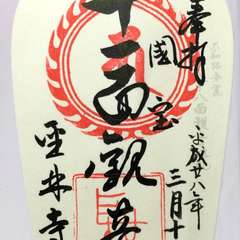 奉拝
平成廿八年
三月十
國宝
十一面観音
聖林寺